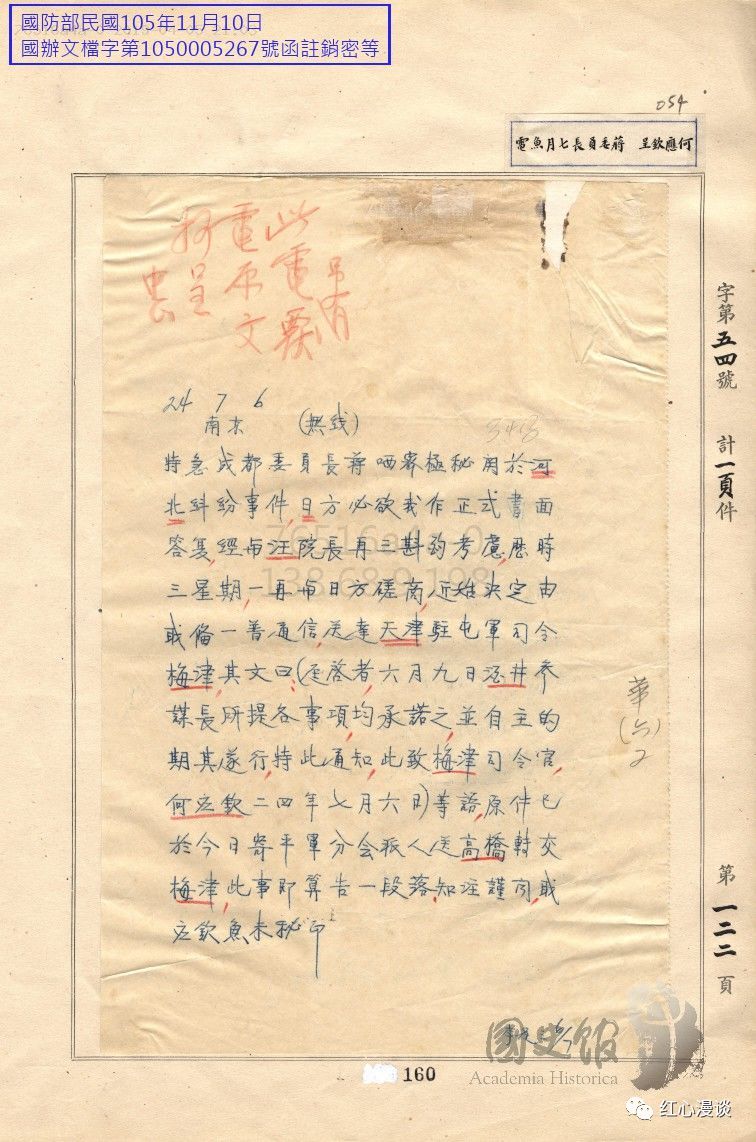 國防部民國105年11月10日
國辦文檔字第1050005267號函註銷密等
054
何應欽呈 蔣委員長七月魚電
此電要
電原文
呈
24 7 6
南京 (無线)
特急成都委員長蔣 極秘関於河
北糾紛事件,日方必欲我作正式書面
答复,經与汪院長再三斟酌考慮,歷時
三星期,一再与日方磋商,近始决定由
職俻一普通信,送達天津駐屯軍司令
梅津,其文曰:(逕啓者,六月九日酒井参
謀長所提各事項,均承諾之,並自主的
期其遂行,特此通知,此致梅津司令官,
何应欽二四年七月六日)等語,原件已
於今日寄平軍分会派人送高橋轉交
梅津,此事即算告一段落,知注謹聞,職
应欽魚未秘印
字第五四號 計一頁件
華(六)2
第一二二頁
國史館
Academia Historica
160
红心漫谈